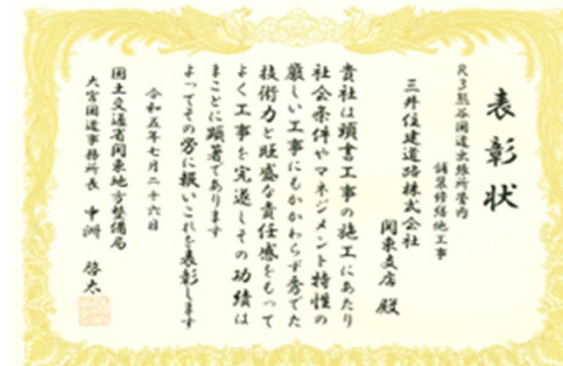 表彰状
R3熊谷国道出張所管内
舗装修繕他工事
三井住建道路株式会社
関東支店 殿
貴社は頭書工事の施工にあたり
社会条件やマネジメント特性の
厳しい工事にもかかわらず秀でた
技術力と旺盛な責任感をもって
よく工事を完遂しその功績は
まことに顕著であります
よってその労に報いこれを表彰します
令和五年七月二十六日
国土交通省関東地方整備局
大宮国道事務所長 中洲 啓太